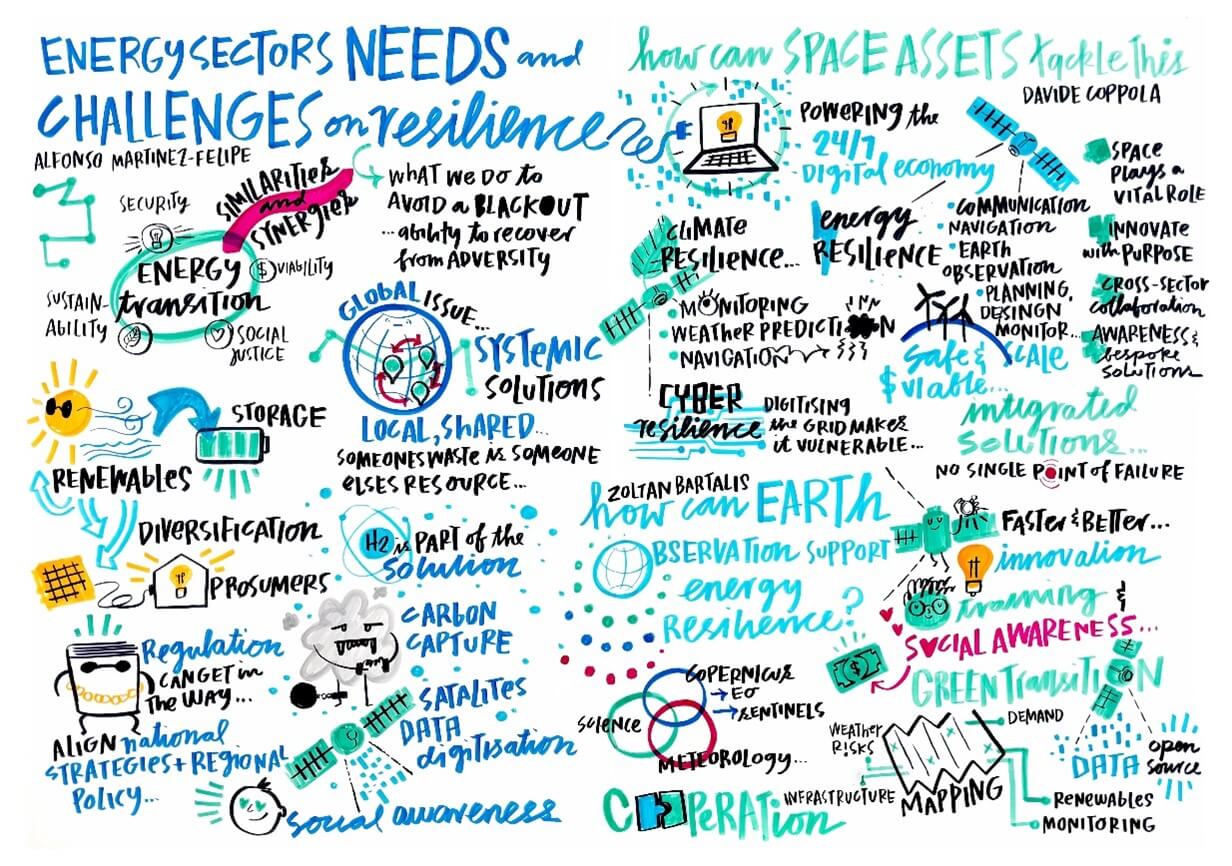 ENERGY SECTORS NEEDS and
CHALLENGES on resilience
ALFONSO MARTINEZ-FELIPE
SIMILARITIES
and
SYNERGIES
WHAT WE DO to
AVOID a BLACKOUT
...ability to recover
from ADVERSITY
SECURITY
ENERGY
transition
$ VIABILITY
SUSTAIN-
ABILITY
SOCIAL
JUSTICE
GLOBAL ISSUE...
SYSTEMIC
SOLUTIONS
LOCAL, SHARED...
SOMEONES WASTE is SOMEONE
ELSES RESOURCE...
STORAGE
RENEWABLES
DIVERSIFICATION
PROSUMERS
H2 is PART of the
solution
CARBON
CAPTURE
Regulation
CAN GET in
the WAY...
ALIGN national
STRATEGIES + REGIONAL
POLICY...
SATALITES
DATA
digitisation
social awareness
how can SPACE ASSETS tackle this
DAVIDE COPPOLA
POWERING the
24/7
DIGITAL economy
SPACE
PLAYS a
VITAL ROLE
INNOVATE
with PURPOSE
CROSS-SECTOR
collaboration
AWARENESS &
bespoke
solutions
CLIMATE
RESILIENCE...
• MONITORING
• WEATHER PREDICTION
• NAVIGATION
energy
RESILIENCE
• COMMUNICATION
NAVIGATION
• EARTH
OBSERVATION
• PLANNING,
DESINGN
MONITOR...
Safe & SCALE
$ viable...
CYBER
resilience
DIGITISING
the GRID MAKES
it VULNERABLE...
integrated
solutions...
NO SINGLE POINT of FAILURE
ZOLTAN BARTALIS
how can EARTH
OBSERVATION SUPPORT
energy
Resilience?
FASTER & BETTER...
innovation
training &
SOCIAL AWARENESS...
$
GREEN TRANSITION
COPERNICUS
→ EO
→ SENTINELS
SCIENCE
METEOROLOGY...
COOPERATION
WEATHER
RISKS
DEMAND
INFRASTRUCTURE
MAPPING
RENEWABLES
MONITORING
DATA
open
source